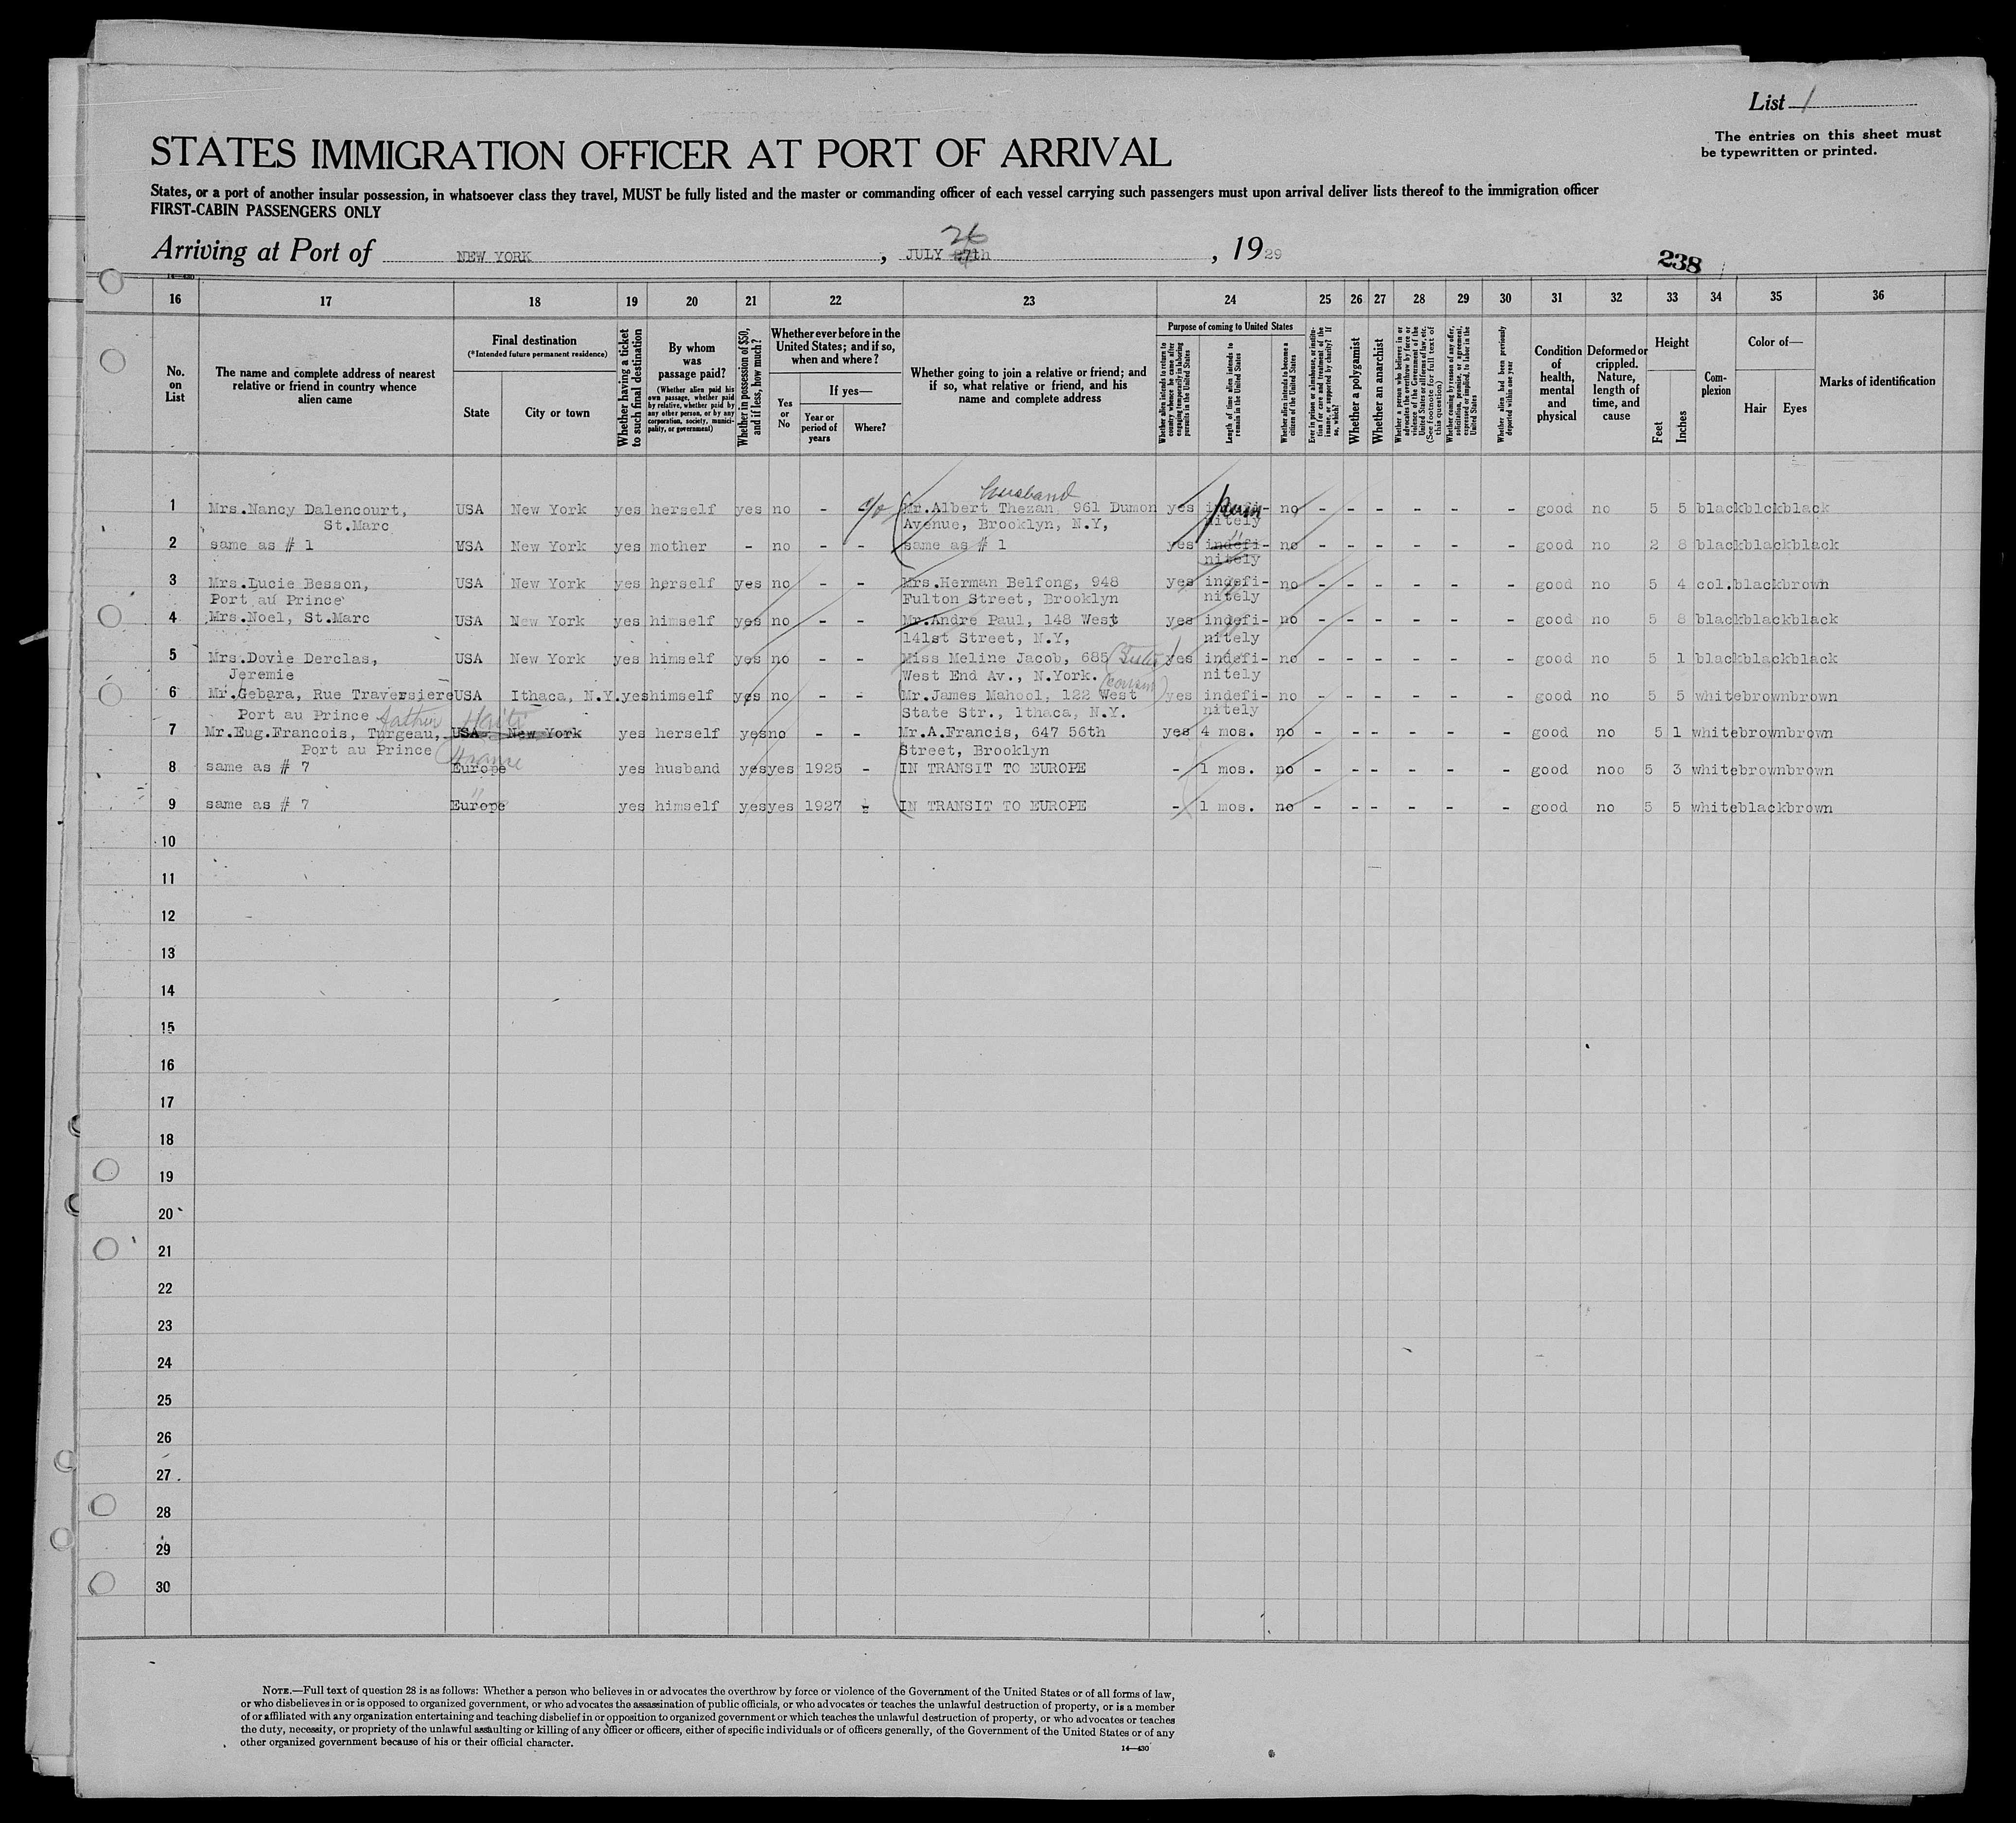 List 1
The entries on this sheet must
be typewritten or printed.
STATES IMMIGRATION OFFICER AT PORT OF ARRIVAL
States, or a port of another insular possession, in whatsoever class they travel, MUST be fully listed and the master or commanding officer of each vessel carrying such passengers must upon arrival deliver lists thereof to the immigration officer
FIRST-CABIN PASSENGERS ONLY
26
Arriving at Port of NEW YORK, JULY 27th, 1929
238
16 17 18 19 20 21 22 23 24 25 26 27 28 29 30 31 32 33 34 35 36
No. on List
The name and complete address of nearest relative or friend in country whence alien came
Final destination
(*Intended future permanent residence)
State
City or town
Whether having a ticket to such final destination
By whom was passage paid?
(Whether alien paid his own passage, whether paid by relative, whether paid by any other person, or by any corporation, society, municipality, or government)
Whether in possession of $50, and if less, how much?
Whether ever before in the United States; and if so, when and where?
Yes or No
If yes—
Year or period of years
Where?
Whether going to join a relative or friend; and if so, what relative or friend, and his name and complete address
Purpose of coming to United States
Whether alien intends to return to country whence he came after engaging temporarily in laboring pursuits in the United States
Length of time alien intends to remain in the United States
Whether alien intends to become a citizen of the United States
Ever in prison or almshouse, or institution for care and treatment of the insane, or supported by charity? If so, which?
Whether a polygamist
Whether an anarchist
Whether a person who believes in or advocates the overthrow by force or violence of the Government of the United States or all forms of law, etc. (See footnote for full text of this question)
Whether coming by reason of any offer, solicitation, promise, or agreement, expressed or implied, to labor in the United States
Whether alien had been previously deported within one year
Condition of health, mental and physical
Deformed or crippled. Nature, length of time, and cause
Height
Feet
Inches
Complexion
Color of—
Hair
Eyes
Marks of identification
husband
1 Mrs.Nancy Dalencourt, USA New York yes herself yes no - c/o Mr.Albert Thezan 961 Dumon yes indefi- perm no - - - - - - good no 5 5 black blck black
St.Marc Avenue, Brooklyn, N.Y, nitely
2 same as # 1 USA New York yes mother - no - - same as # 1 yes indefi- " no - - - - - - good no 2 8 black black black
nitely
3 Mrs.Lucie Besson, USA New York yes herself yes no - - Mrs.Herman Belfong, 948 yes indefi- no - - - - - - good no 5 4 col. black brown
Port au Prince Fulton Street, Brooklyn nitely
4 Mrs.Noel, St.Marc USA New York yes himself yes no - - Mr.Andre Paul, 148 West yes indefi- no - - - - - - good no 5 8 black black black
141st Street, N.Y, nitely
5 Mrs.Dovie Derclas, USA New York yes himself yes no - - Miss Meline Jacob, 685 Sister yes indefi- no - - - - - - good no 5 1 black black black
Jeremie West End Av., N.York. (cousin) nitely
6 Mr.Gebara, Rue Traversiere USA Ithaca, N.Y. yes himself yes no - - Mr.James Mahool, 122 West yes indefi- no - - - - - - good no 5 5 white brown brown
Port au Prince father Haiti State Str., lthaca, N.Y. nitely
7 Mr.Eug.Francois, Turgeau, USA New York yes herself yes no - - Mr.A.Francis, 647 56th yes 4 mos. no - - - - - - good no 5 1 white brown brown
Port au Prince France Street, Brooklyn
8 same as # 7 Europe yes husband yes yes 1925 - IN TRANSIT TO EUROPE - 1 mos. no - - - - - - good noo 5 3 white brown brown
"
9 same as # 7 Europe yes himself yes yes 1927 - IN TRANSIT TO EUROPE - 1 mos. no - - - - - - good no 5 5 white black brown
10
11
12
13
14
15
16
17
18
19
20
21
22
23
24
25
26
27
28
29
30
NOTE.—Full text of question 28 is as follows: Whether a person who believes in or advocates the overthrow by force or violence of the Government of the United States or of all forms of law,
or who disbelieves in or is opposed to organized government, or who advocates the assassination of public officials, or who advocates or teaches the unlawful destruction of property, or is a member
of or affiliated with any organization entertaining and teaching disbelief in or opposition to organized government or which teaches the unlawful destruction of property, or who advocates or teaches
the duty, necessity, or propriety of the unlawful assaulting or killing of any officer or officers, either of specific individuals or of officers generally, of the Government of the United States or of any
other organized government because of his or their official character.
14—430